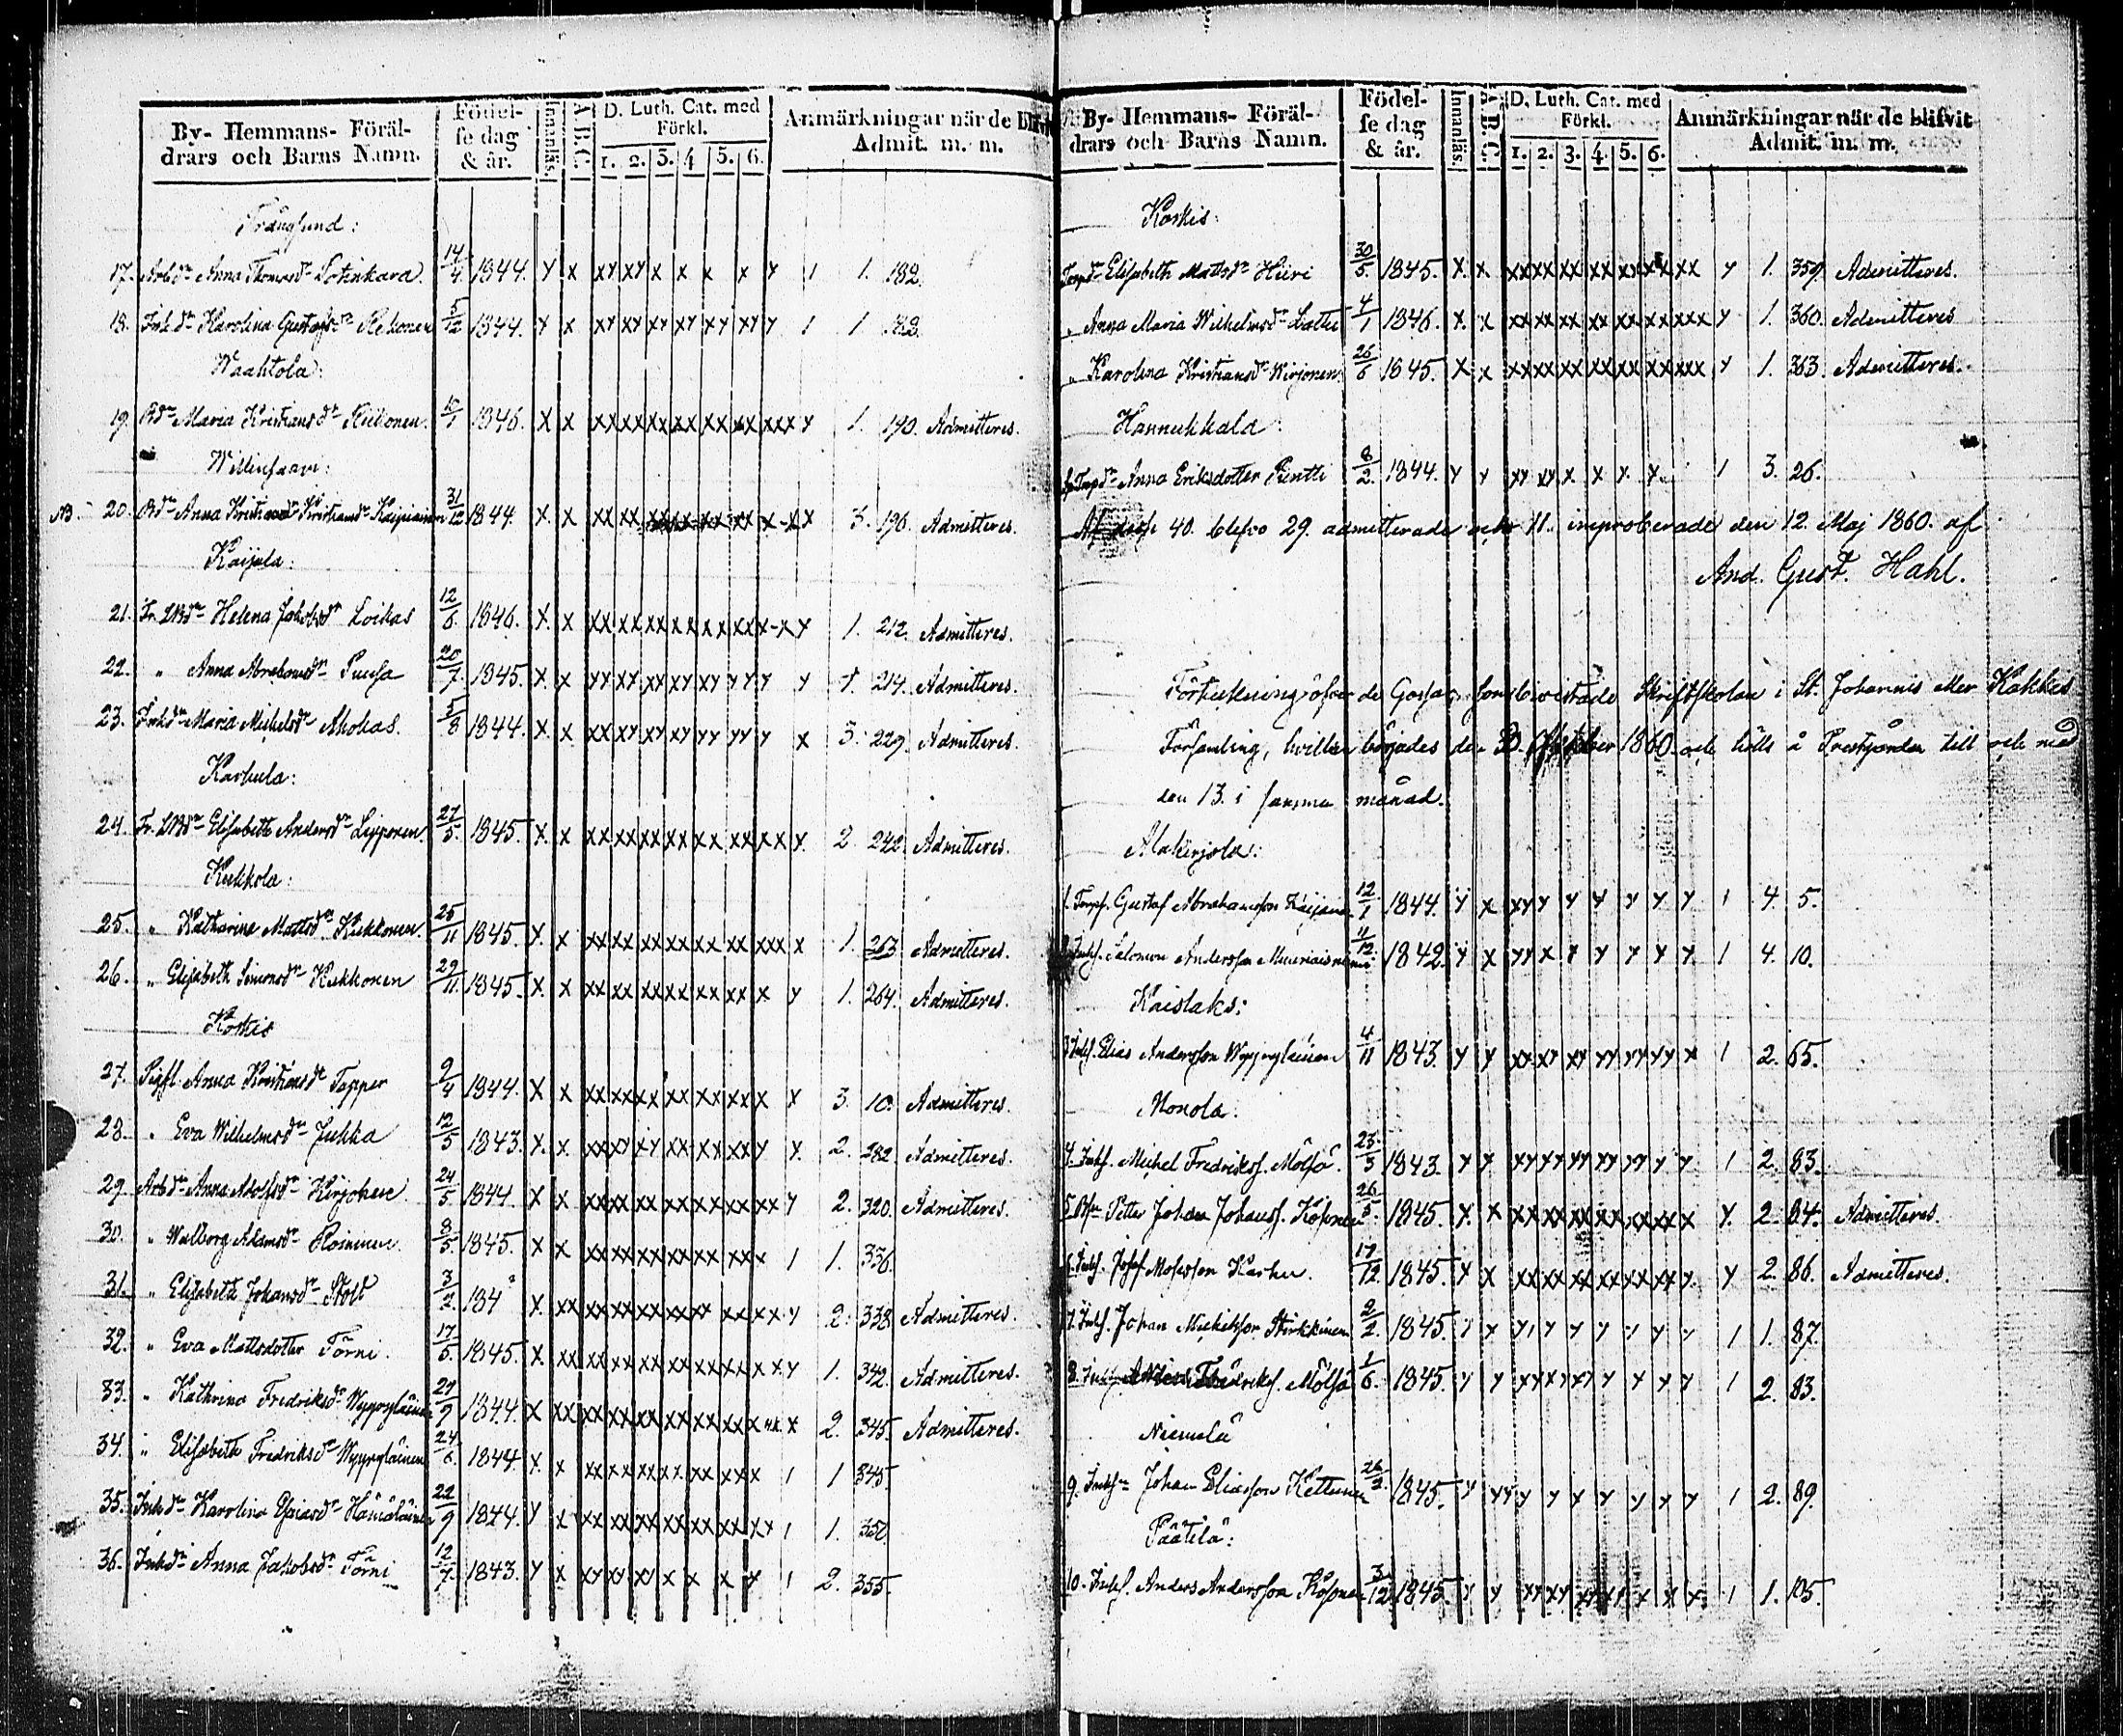 By- Hemmans- Föräl-
drars och Barns Namn.
Födel-
se dag
& år.
Innanläs.
A.B.C.
D. Luth. Cat. med
Förkl.
1. 2. 3. 4 5. 6.
Anmärkningar när de blifvit
Admit. m. m.
Trångsund:
17. Arb.dr Anna Thomasdr Lotinkara 14/4 1844. y x xy xy x x x x y 1 1. 182.
18. Inh.dr Karolina Gustafsdr Rekonen 5/12 1844. y x xy xy xy xy xy xy y 1 1
Waahtola:
19. Bdr Maria Kristiansdr 1846. x x xx xx xx xx xx xx xxx y 1. 190. Admitteres.
Willinsaari:
NB. 20. Bdr Anna Kristiansdr Kaipiainen 31/12 1844. x x xx xx xx xx xx xx x-xx 3. 196. Admitteres.
Kaijala:
21. Fr. LBdr Helena Jakobsdr Loikas 12/6. 1846. x x 1. 212. Admitteres.
22. " Anna Abrahamsdr Puusa 20/7 1845. x x yy xy xy xy xy yy y y 1. 214. Admitteres.
23. Inhdr Maria Michelsdr Ahokas. 5/8 1844. x x xx xy xy xy yy yy y x 3. 229. Admitteres.
Karhula:
24. Fr. LBdr Elisabeth Andersdr Lipponen. 27/5. 1845. x x xx xx xx xx xx xx xx y 2. 242. Admitteres.
Kukkola:
25. " Katharina Mattsdr Kukkonen. 25/11 1845. x x xx xx xx xx xx xx xxx x 1. 263 Admitteres.
26. " Elisabeth Simonsdr Kukkonen 29/11. 1845. x x xx xx xx xx xx xx x y 1. 264. Admitteres.
Koskis
27. Anna Kristiansdr Tapper 9/4 1844. x x xx xx xx xx xx xx x x 3. 10. Admitteres.
28. " Eva Wilhelmsdr Jukka 12/5 1843. x x 2. 282. Admitteres.
29. Arbdr Anna Adolfsdr 24/5 1844. x x xx xx xx xx xx xx xx y 2. 320. Admitteres.
30. " Walborg Adamsdr Roininen. 8/5. 1845. x x xx xx xx xx xx xx x 1 1. 336.
31. " Elisabeth Johansdr Stolt 3/2. 184 x xx xx xx xx xx xx xx xx y 2. 338 Admitteres.
32. " Eva Mattsdotter Törni. 17/5. 1845. x xx xx xx xx xx xx xx xx y 1. 342. Admitteres.
33. " Kathrina Fredriksdr Wyyryläinen 29/9 1844. x xx xx xx xx xx xx xx x x 2. 345. Admitteres.
34. " Elisabeth Fredriksdr Wyyryläinen 24/6. 1844. x x xx xx xx xx xx xx x 1 1 345.
35. Inhdr Karolina Esaiasdr Hämäläinen 22/9 1844. y x xx xx xx xx xx xx xy 1 1. 350.
36. Inhdr Anna Jakobsdr Törni 12/7. 1843. y x xy xy xy x x x y 1 2. 355.
By- Hemmans- Föräl-
drars och Barns Namn.
Födel-
se dag
& år.
Innanläs.
A.B.C.
D. Luth. Cat. med
Förkl.
1. 2. 3. 4. 5. 6.
Anmärkningar när de blifvit
Admit. m. m.
Koskis:
Torpdr Elisabeth Mattsdr Hiiri 30/5. 1845. x. x xx xx xx xx xx xx xx y 1. 359. Admitteres.
" Anna Maria Wilhelmsdr 4/1 1846. x. x xx xx xx xx xx xx xxx y 1. 360. Admitteres
" Karolina Kristiansdr 26/6 1845. x x xx xx xx xx xx xx xxx y 1. 363. Admitteres.
Hannukkala:
Anna Eriksdotter Pentti 8/2. 1844. y y xy xy x x x x. 1 3. 26.
Af desse 40. blefvo 29. admitterade och 11. improberade den 12. Maj 1860. af
And. Gust. Hahl.
Förteckning öfver de Gossar, som bevistade Skriftskolan i St. Johannis eller Kakkis
Församling, hvilken börjades den Oktober 1860. och hölls å Prestgården till och med
den 13. i samma månad.
Alakirjola:
1. Torps. Gustaf Abrahamsson 12/1 1844. y x xy y y y y y y 1 4. 5.
Inhs. Salomon Andersson 11/12 1842. y x yy x y y y y y 1 4. 10.
Kaislaks:
3. Inhs. Elias Andersson Wyyryläinen 4/11 1843. y y xx xy xy yy yy yy x 1 2. 65.
Monola:
4. Inhs. Michel Fredrikss. Mölsä. 23/3 1843. y y xy yy yy yy yy y y 1 2. 83.
5. Petter Johan Johanss. Kosonen 26/5. 1845. x. x xx xx xx xx xx xx x y. 2. 84. Admitteres.
6. Inhs. Josef Mosesson Karhu. 17/12 1845. y x xx xx xx xx xx xx y. y 2. 86. Admitteres.
7. Inhs. Johan Michelsson 2/2. 1845. y y y y y y y y y 1 1. 87.
8. Fredrikss. Mölsä 1/6. 1845. y y xy xy xy y y y y 1 2. 83.
Niemelä
9. Johan Eliasson Kettunen 26/2. 1845. y yy y y y y y y y 1 2. 89.
Päätilä:
10. Inhs. Anders Andersson Kosonen 3/12 1845. y y xy xy xy xy x x x 1 1. 105.